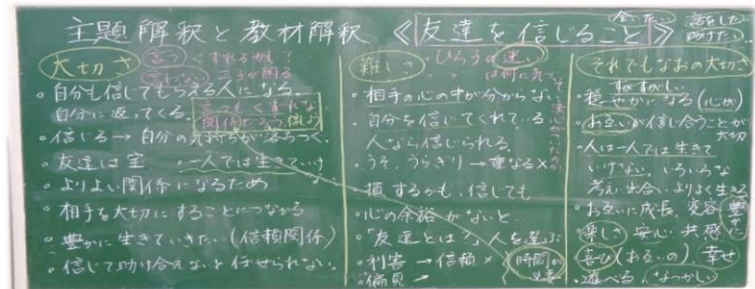 主題解釈と教材解釈《友達を信じること》
会いたい 話をしたい
助けたい
大切さ
言う くずれるかも?
言わない 正子が困る
・自分も信じてもらえる人になる。
自分に返ってくる。
言ってもくずれない
関係だろう。信じよう
・信じる→自分の気持ちが落ちつく。
・友達は宝 ・一人では生きていけ
・よりよい関係になるため
・相手を大切にすることにつながる
・豊かに生きていきたい(信頼関係)
・信じて助け合えないと任せられない。
難しさ
・ひろ子の迷い
は何に気づいて決心がついたのか
・相手の心の中が分からない
自分を信じてくれている
人なら信じられる。
・うそ、うらぎり→重なる×
・損するかも、信じても
・心の余裕がないと…
・「友達とは?」人を選ぶ
・利害→信頼×
時間が必要
・偏見→
それでもなおの大切さ
すがすがしい
・穏やかになる(心が)
・お互いが信じ合うことが
大切
・人は一人では生きて
いけない。いろいろな
考え出合いよりよく生きる
・お互いに成長、変容 豊かに
・楽しさ 安心 共感
・喜び(あるもの)、幸せ
・遊べる、なつかしい